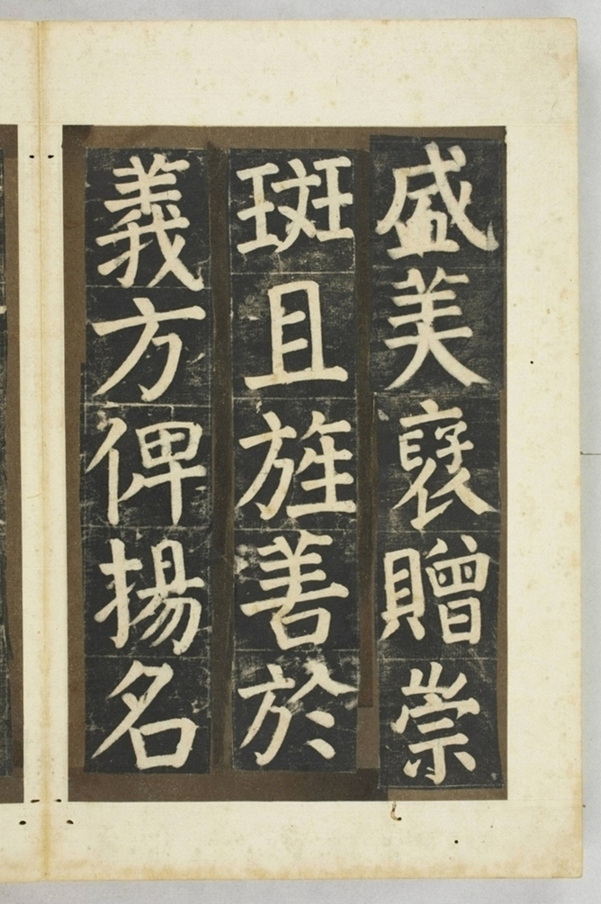 盛美褒贈崇
班且旌善於
義方俾揚名